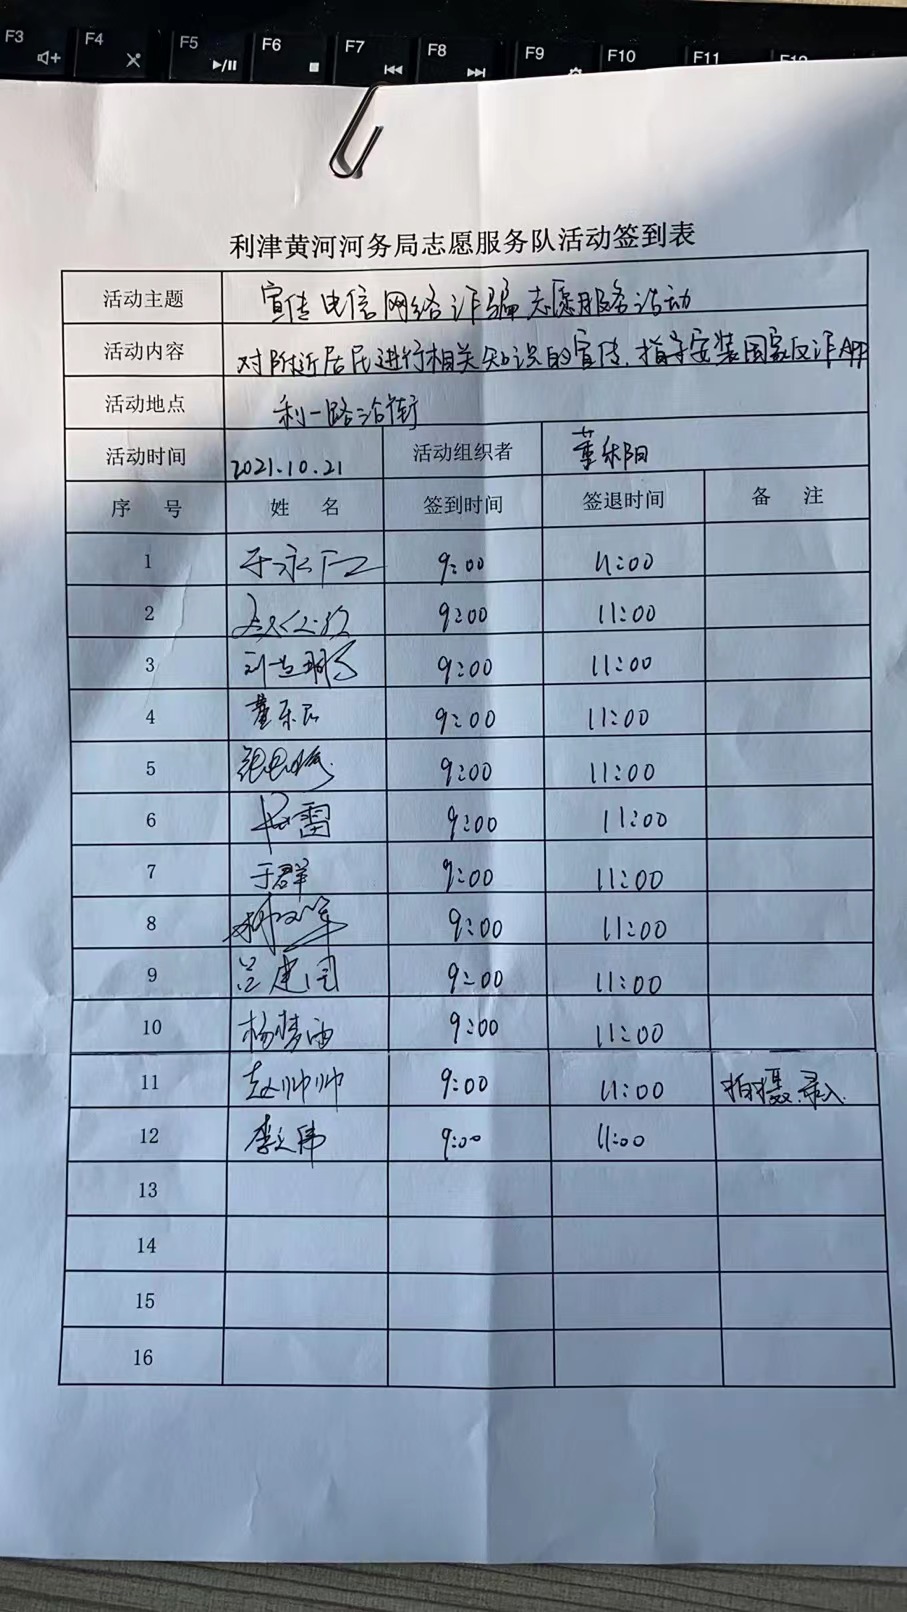 F3 F4 F5 F6 F7 F8 F9 F10 F11 F12
利津黄河河务局志愿服务队活动签到表
活动主题 宣传电信网络诈骗志愿服务活动
活动内容 对附近居民进行相关知识的宣传、指导安装国家反诈APP
活动地点 利一路沿街
活动时间 2021.10.21 活动组织者 董乐阳
序 号 姓 名 签到时间 签退时间 备 注
1 9:00 11:00
2 9:00 11:00
3 9:00 11:00
4 9:00 11:00
5 9:00 11:00
6 雷 9:00 11:00
7 于群 9:00 11:00
8 9:00 11:00
9 兰建国 9:00 11:00
10 杨梦雨 9:00 11:00
11 赵帅帅 9:00 11:00 拍摄、录入
12 9:00 11:00
13
14
15
16